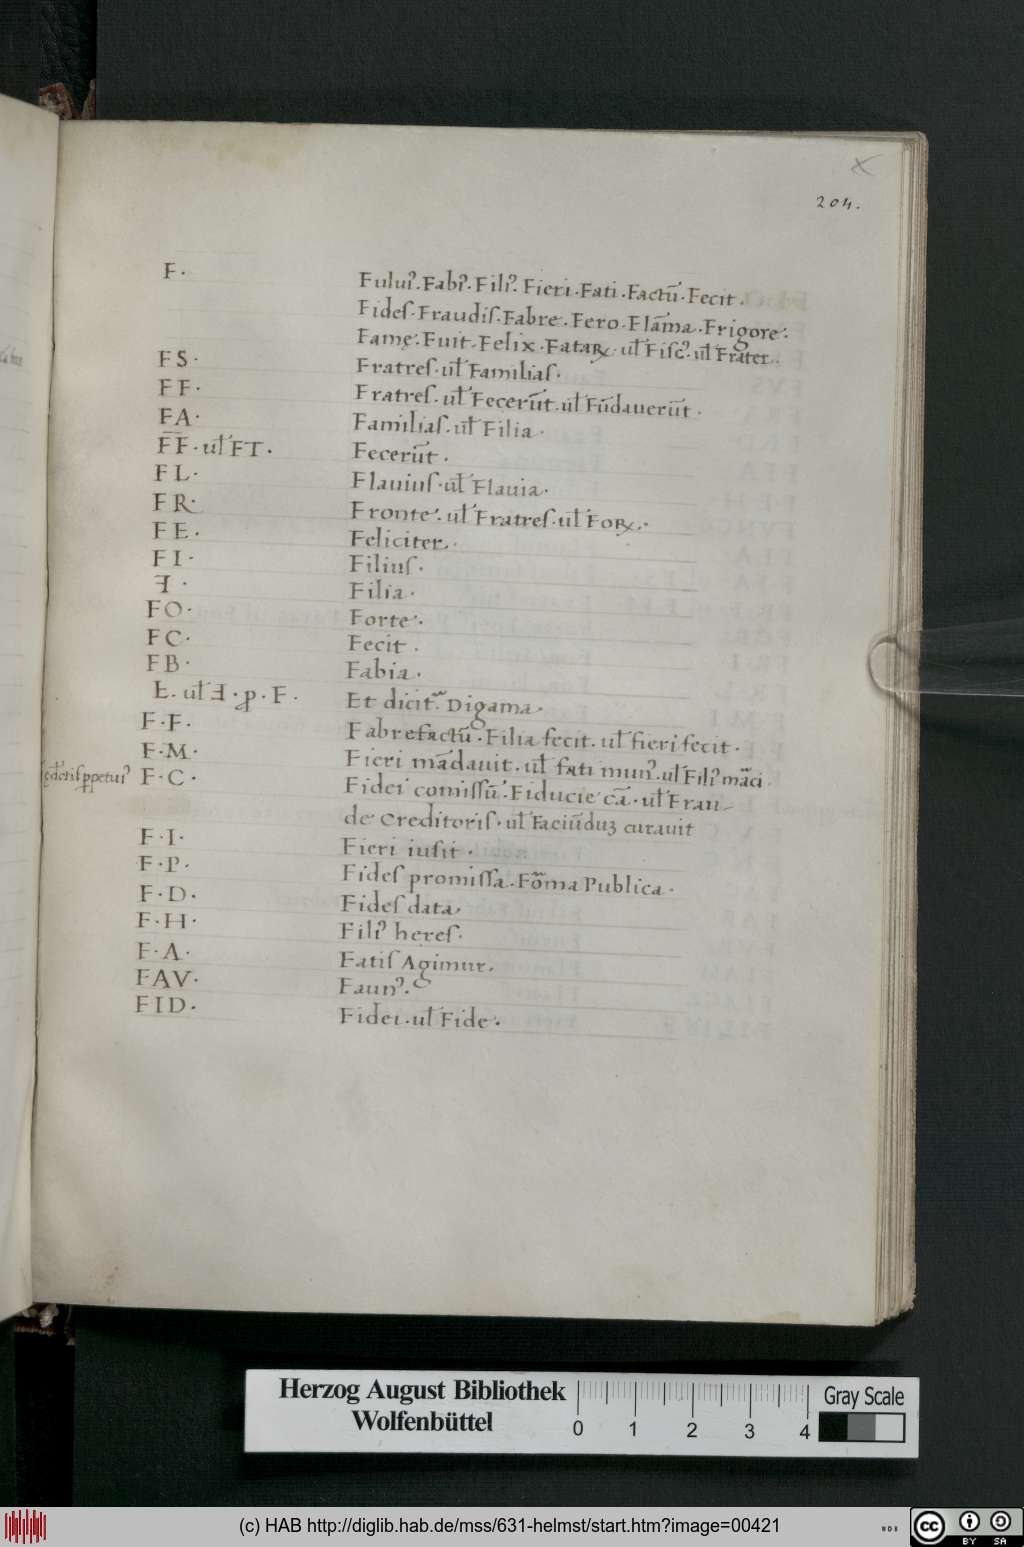 204.
F· Fului᾽. Fabi᾽. Fili᾽. Fieri. Fati. Factū. Fecit.
Fides. Fraudis. Fabre. Fero. Flāma. Frigore.
Famę. Fuit. Felix. Fataꝝ. ul̄ Fisc᾽. ul̄ Frater.
FS· Fratres. ul̄ Familias.
FF· Fratres. ul̄ Fecerūt. ul̄ Fūdauerūt.
FA· Familias. ul̄ Filia.
F̅F· ul̄ FT· Fecerūt.
FL· Flauius. ul̄ Flauia.
FR· Fronte. ul̄ Fratres. ul̄ Foꝝ.
FE· Feliciter.
FI· Filius.
ꟻ· Filia.
FO· Forte.
FC· Fecit.
FB· Fabia.
Ł. ul̄ ꟻ. ꝓ. F. Et dicit᷑ Digama.
F·F· Fabrefactū. Filia fecit. ul̄ fieri fecit.
F·M· Fieri mādauit. ul̄ fati mun᾽. ul̄ Fili᾽ māci
F·C· Fidei comissū. Fiducie cā. ul̄ Frau-
de Creditoris. ul̄ Faciūduꝫ curauit
F·I· Fieri iusit.
F·P· Fides promissa. Fōma Publica.
F·D· Fides data.
F·H· Fili᾽ heres.
F·A· Fatis Agimur.
FAV· Faun᾽.
FID· Fidei. ul̄ Fide.
Herzog August Bibliothek
Wolfenbüttel
0 1 2 3 4
Gray Scale
(c) HAB http://diglib.hab.de/mss/631-helmst/start.htm?image=00421
cc BY SA